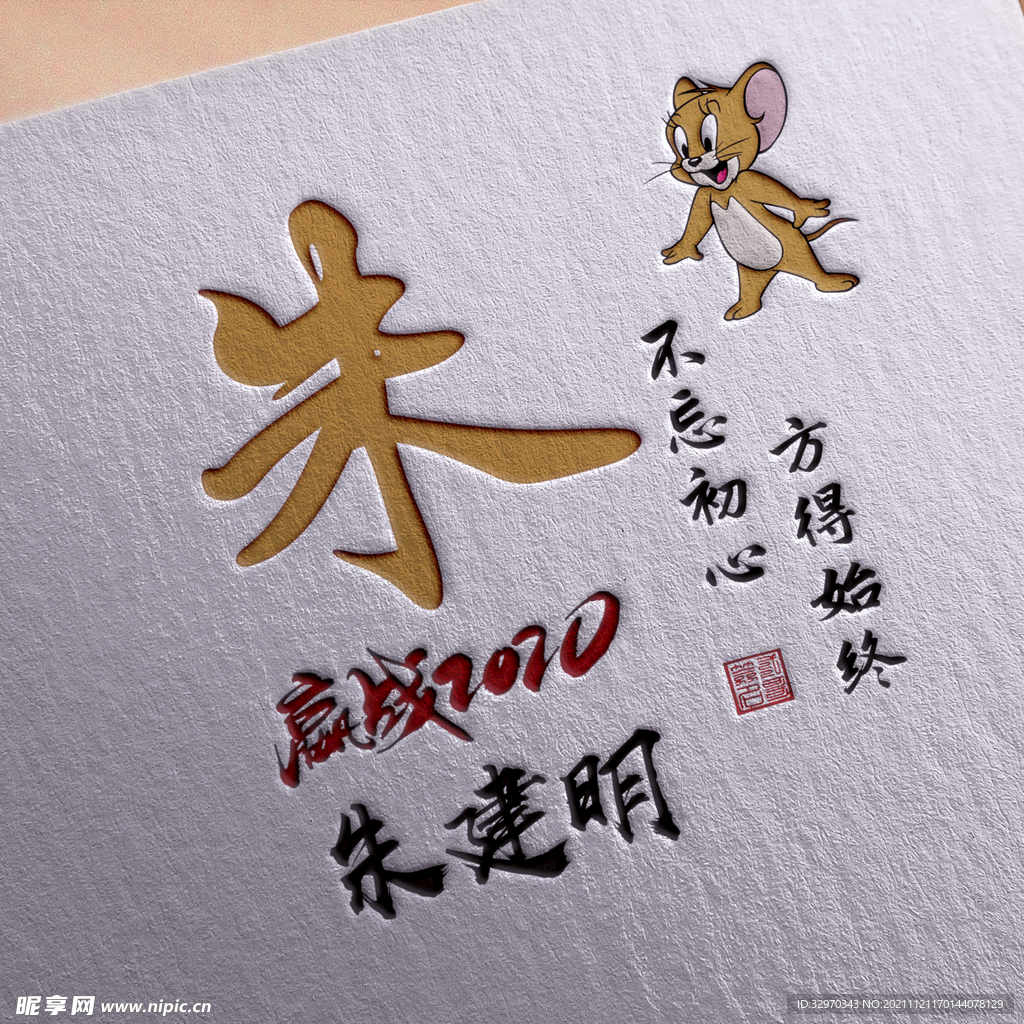 朱
不忘初心
方得始终
赢战2020
朱建明
昵享网 www.nipic.cn
ID:32970343 NO:20211121170144078129